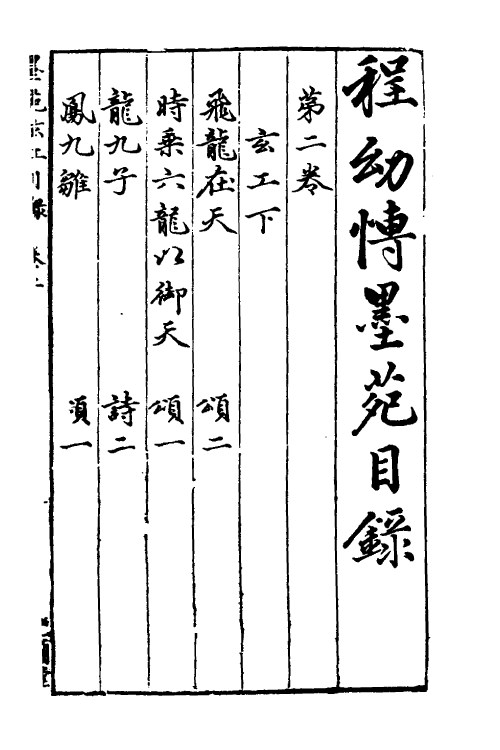 程幼博墨苑目錄
第二卷
玄工下
飛龍在天 頌二
時乘六龍以御天 頌一
龍九子 詩二
鳳九雛 頌一
墨苑玄工目錄 卷二